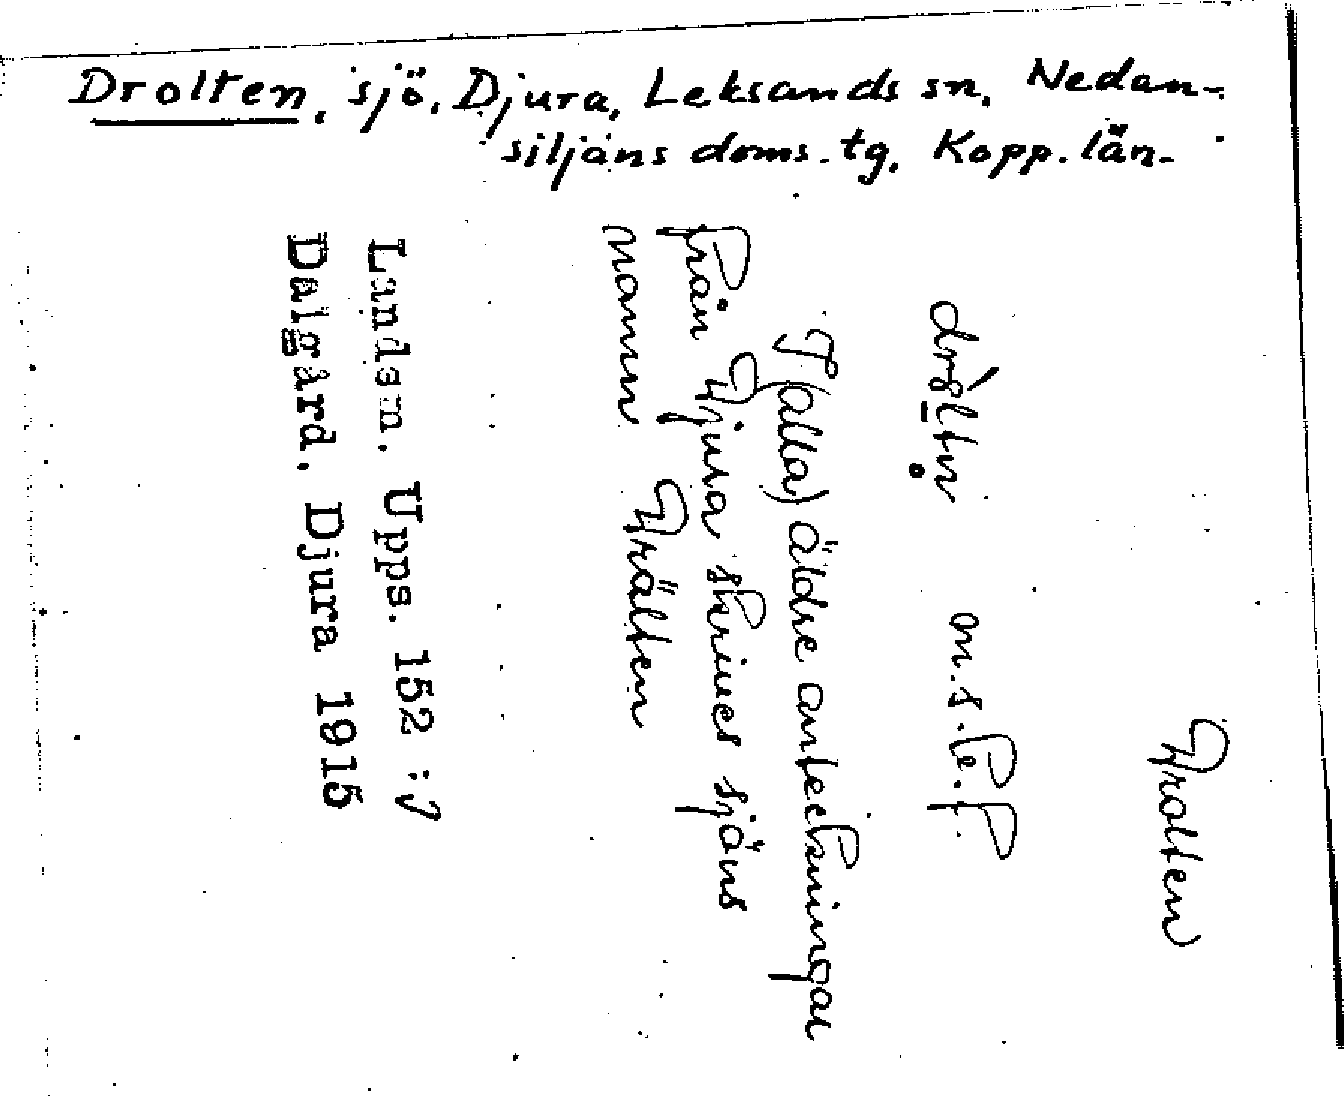 Drolten, sjö, Djura, Leksands sn, Nedan-
siljans doms. tg. Kopp. län.
Drolten
m.s.b.f.
I (alla) äldre anteckningar
från Djura skrives sjöns
namn Drålten
Landsm. Upps. 152 :
Dalgård. Djura 1915